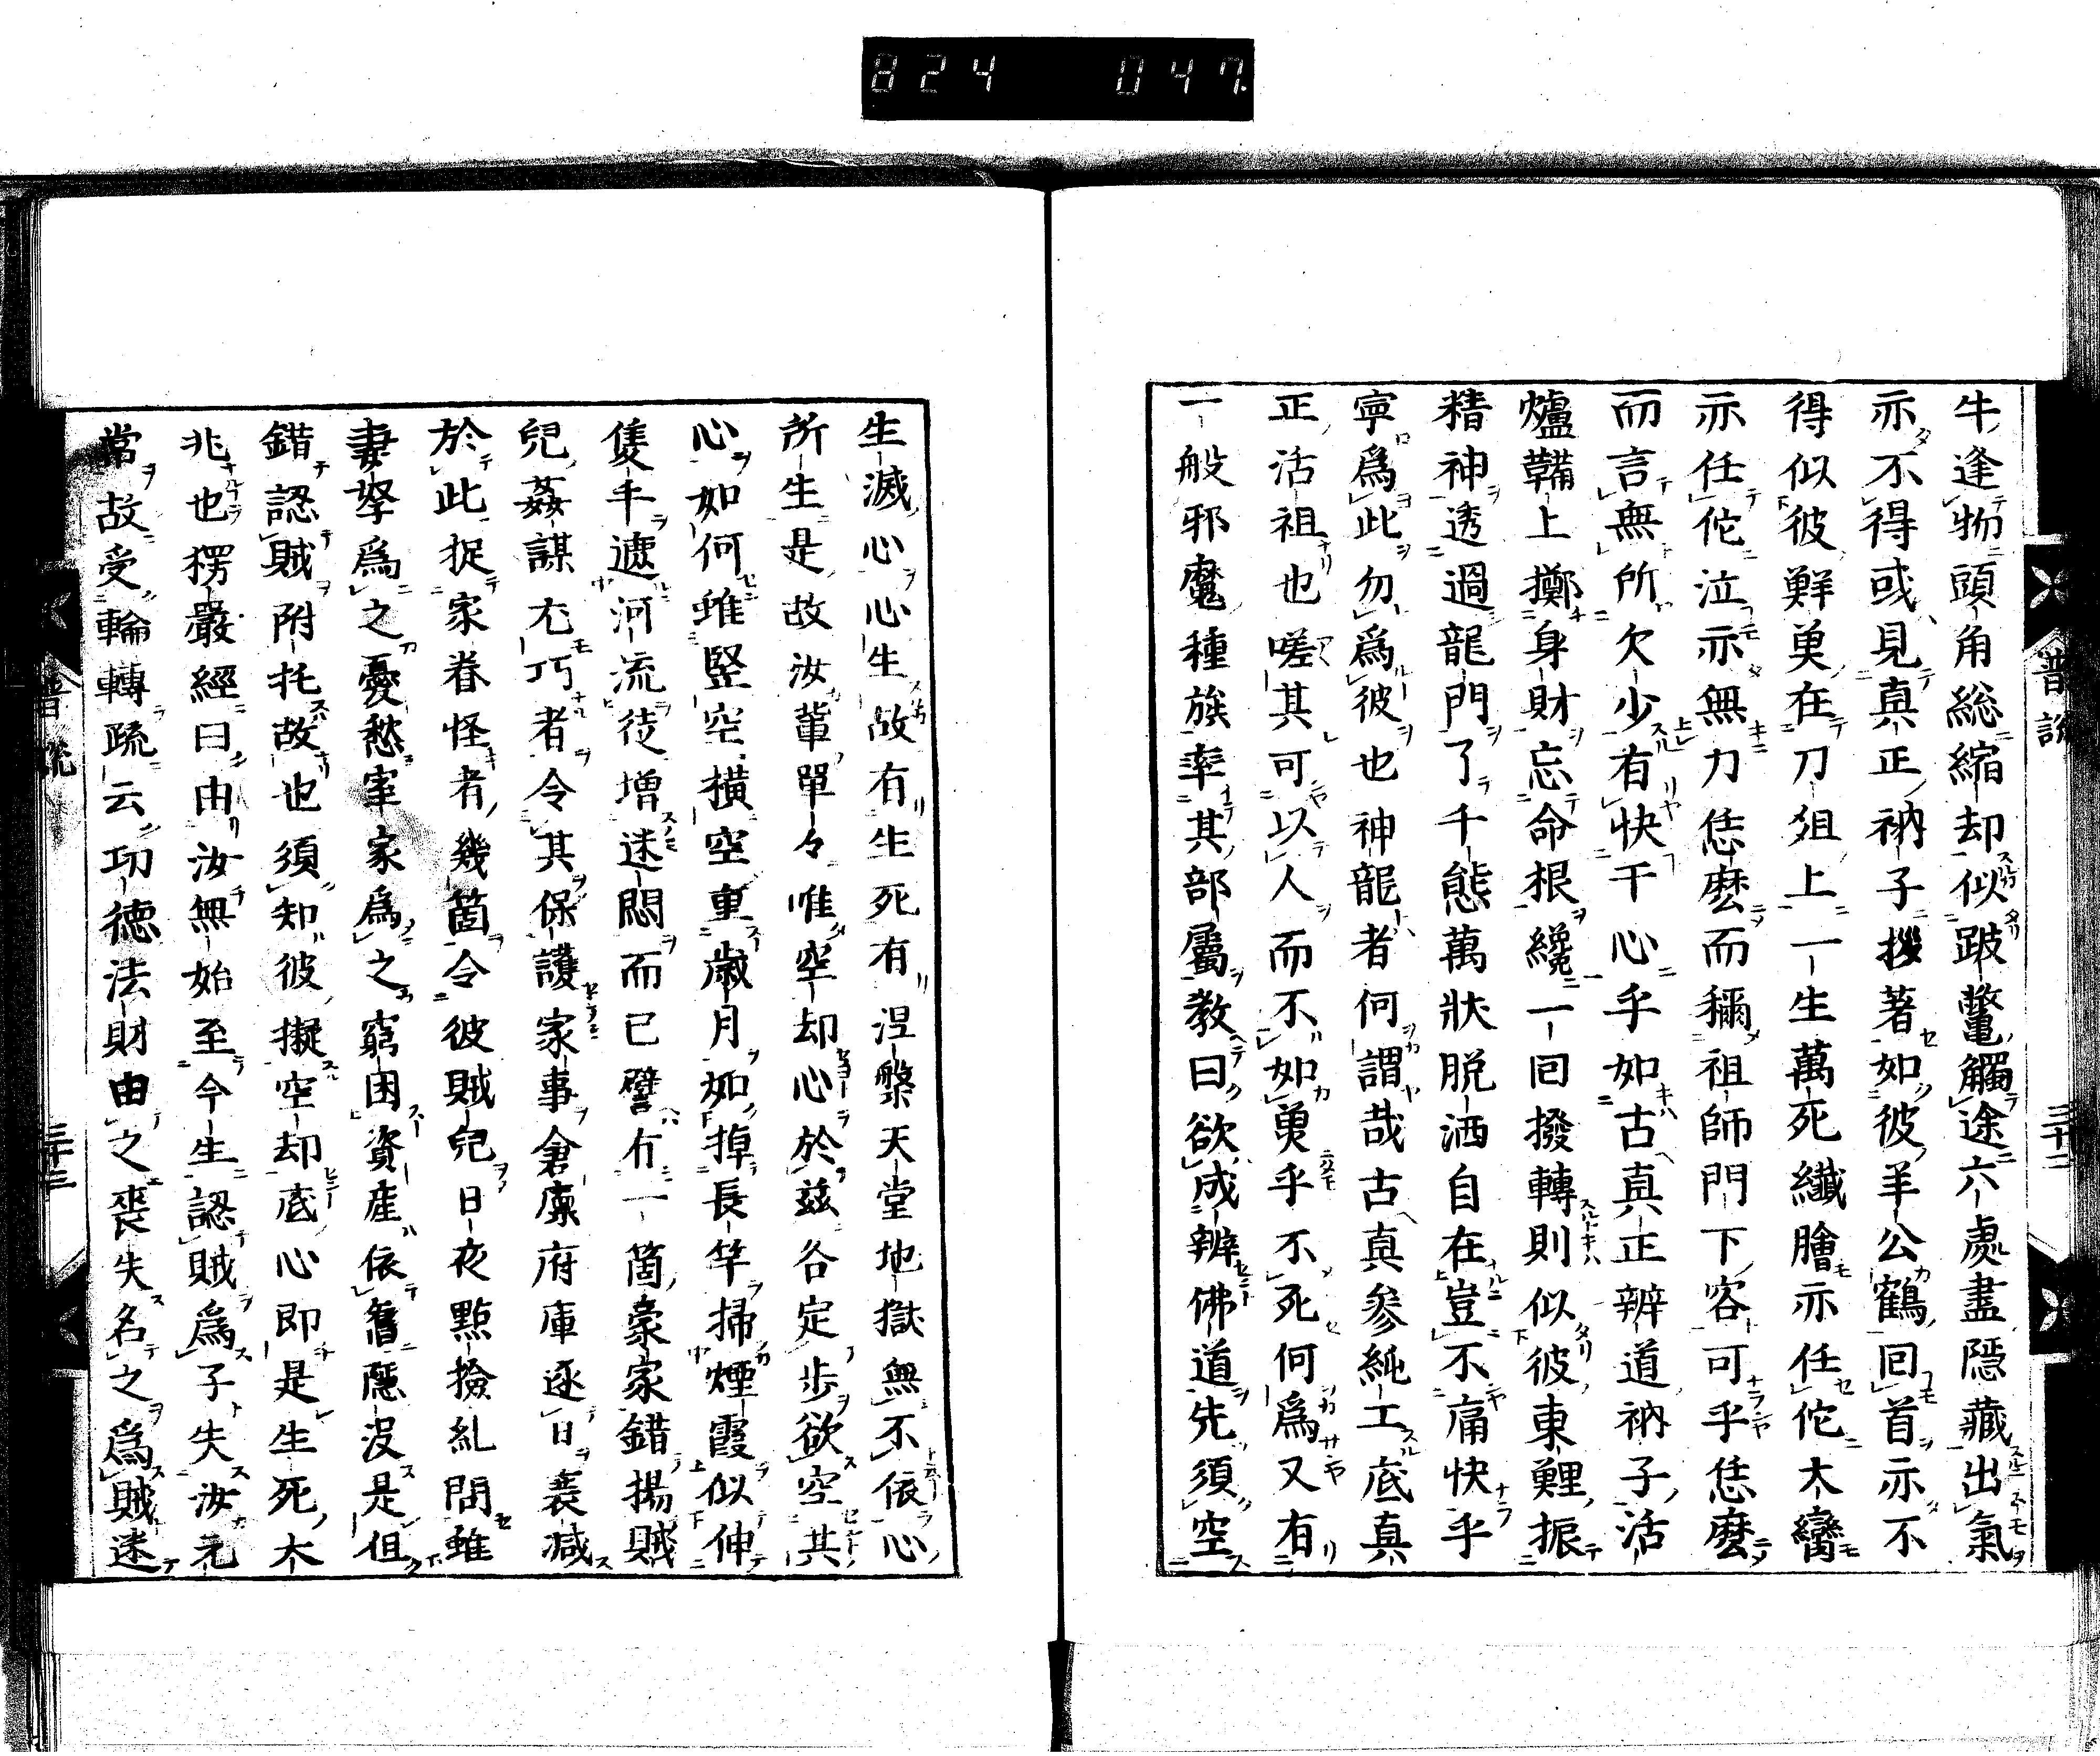 824 047
牛逢物頭角総縮却似跛鼈觸途六處盡隱藏出氣
亦不得或見真正衲子拶著如彼羊公鶴回首亦不
得似彼鮮魚在刀俎上一生萬死纖膾亦任佗大臠
亦任佗泣亦無力恁麽而稱祖師門下客可乎恁麽
而言無所欠少有快干心乎如古真正辨道衲子活
爐鞴上擲身財忘命根纔一回撥轉則似彼東鯉振
精神透過龍門了千態萬狀脱洒自在豈不痛快乎
寧爲此勿爲彼也神龍者何謂哉古真参純工底真
正活祖也嗟其可以人而不如魚乎不死何爲又有
一般邪魔種族率其部屬教曰欲成辨佛道先須空
普說 三十二
生滅心心生故有生死有涅槃天堂地獄無不依心
所生是故汝輩單々唯空却心於茲各定歩欲空其
心如何雖竪空横空重歳月如掉長竿掃煙霞似伸
隻手遮河流徒增迷悶而已譬有一箇豪家錯揚賊
兒姦謀尤巧者令其保護家事倉廩府庫逐日衰減
於此捉家眷怪者幾箇令彼賊兒日夜點撿糺問雖
妻孥爲之憂愁宰家爲之窮困資産依舊隱没是但
錯認賊附托故也須知彼擬空却底心即是生死大
兆也楞嚴經曰由汝無始至今生認賊爲子失汝元
常故受輪轉疏云功德法財由之喪失名之爲賊迷
普說 三十三